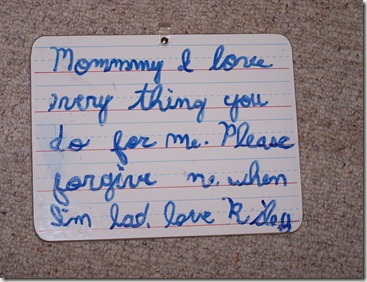 Mommmy I love
every thing you
do for me. Please
forgive me. when
I'm bad. love Riley